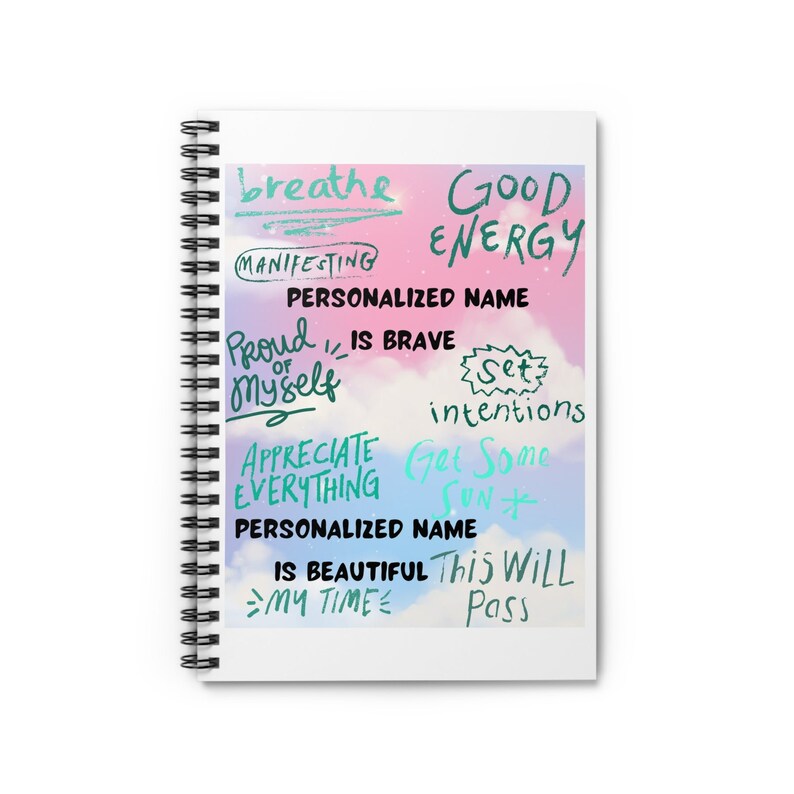 breathe
GOOD
ENERGY
MANIFESTING
PERSONALIZED NAME
IS BRAVE
Proud
OF
Myself
Set
intentions
APPRECIATE
EVERYTHING
Get Some
SUN
PERSONALIZED NAME
IS BEAUTIFUL
THIS WILL
Pass
MY TIME